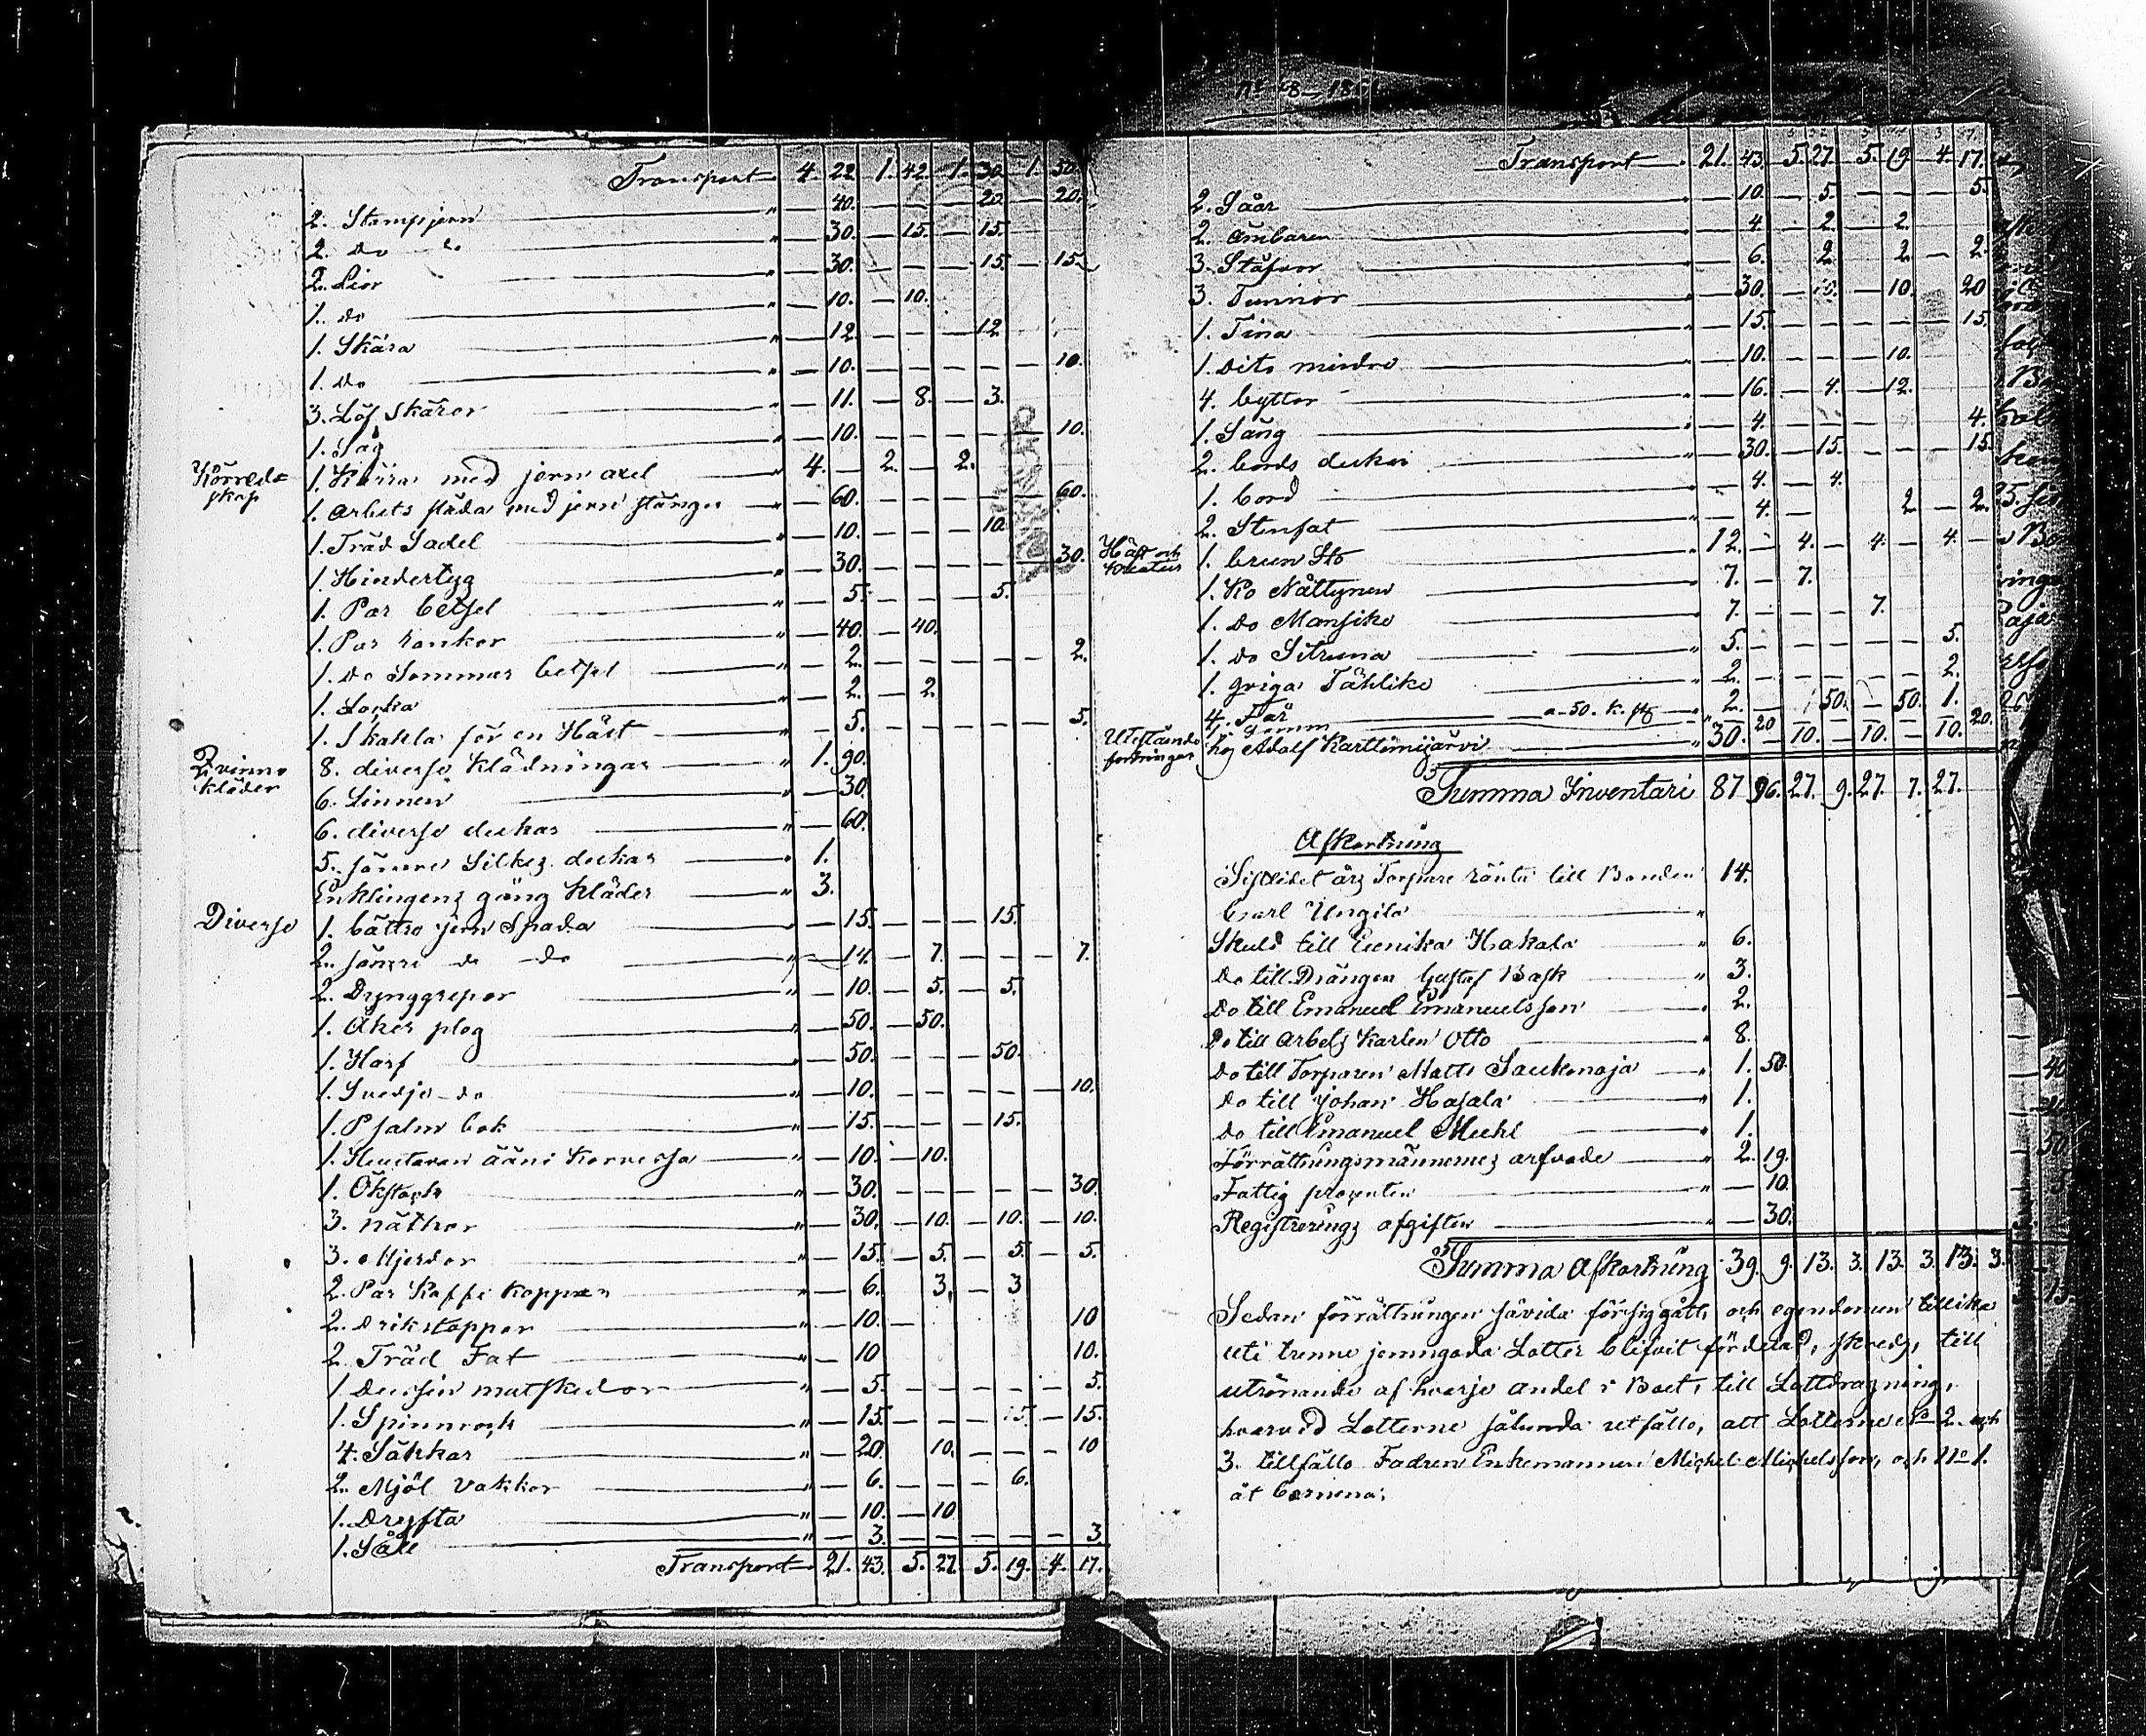 Transport 4. 22. 1. 42. 1. 30. 1. 50.
2. Stampjern " — 40. — — — 20. — 20.
2. Do do " — 30. — 15. — 15.
2. Lior " — 30. — — — 15. — 15.
1. do " — 10. — 10.
1. Skära " — 12. — — — 12
1. do " — 10. — — — — — 10.
3. Löf skäror " — 11. — 8. — 3.
1. Såg " — 10. — — — — — 10.
Körred=
skap
1. Kärra med jern axel " 4. — 2. — 2.
1. Arbets släda med jern stänger " — 60. — — — — — 60.
1. Träd Sadel " — 10. — — — 10.
1. Hindertyg " — 30. — — — — — 30.
1. Par betsel " — 5. — — — 5.
1. Par rankor " — 40. — 40.
1. Do Sommar betsel " — 2. — — — — — 2.
1. Locka " — 2. — 2.
1. Skakla för en Häst " — 5. — — — — — 5.
Qvinns
kläder
8. diverse Klädningar " 1. 90.
6. Linnen " — 30.
6. diverse dukar " — 60.
5. sämre Silkes dukar " 1.
Enklingens gång Kläder " 3.
Diverse
1. bättre jern Spada " — 15. — — — 15.
2. sämre do do " — 14. — 7. — — — 7.
2. Dynggrepor " — 10. — 5. — 5.
1. Åker plog " — 50. — 50.
1. Harf " — 50. — — — 50.
1. Svedje do " — 10. — — — — — 10.
1. Psalm bok " — 15. — — — 15.
1. Huutavan ääni Korvessa " — 10. — 10.
1. Ökstock " — 30. — — — — — 30.
3. nät " — 30. — 10. — 10. — 10.
3. Mjerdor " — 15. — 5. — 5. — 5.
2. Par Kaffe Koppar " — 6. — 3. — 3
2. Drikstoppor " — 10. — 10
2. Träd Fat " — 10 10.
1. Dussin matskedar " — 5. — — — — — 5.
1. Spinnrock " — 15. — — — 15. — 15.
4. Säkkar " — 20. 10. — — — 10
2. Mjöl Vakkor " — 6. — — — 6.
1. Dryfta " — 10. — 10
1. Såll " — 3. — — — — — 3.
Transport 21. 43. 5. 27. 5. 19. 4. 17.
Transport 21. 43. 5. 27. 5. 19 4. 17.
2. Såar " — 10. — 5. — — — 5.
2. Ämbaren " — 4. — 2. — 2.
3. Stäfvor " — 6. 2. 2. — 2.
3. Tunnor " — 30. — — 10. 20
1. Tina " — 15. — — — — — 15.
1. Dito mindre " — 10. — — — 10.
4. byttor " — 16. — 4. — 12.
1. Säng " — 4. — — — — — 4.
2. bords dukar " — 30. — 15. — — — 15.
1. bord " — 4. — 4.
2. Stenfat " — 4. — 2 — 2.
Häst och
Kreatur
1. brun Sto " 12. — 4. — 4. — 4. —
1. Ko Nättynen " 7. — 7.
1. do Mansike " 7. — — — 7.
1. do Sitruna " 5. — — — — — 5.
1. qviga Tählike " 2. — — — — — 2.
4. Får a 50. k. st " 2. — 50. — 50. 1.
Utestående
fordringar
hos Adolf Karttimijärvi " 30. 20 10. — 10. — 10. 20.
Summa Inventari 87 96. 27. 9. 27. 7. 27.
Afkortning
Sistlidet års Torpare ränta till Bonden 14.
Carl Ungila "
Skuld till Eenika Hakala " 6.
Do till Drängen Gustaf Bask " 3.
Do till Emanuel Emanuelsson " 2.
Do till Arbets Karlen Otto " 8.
Do till Torparen Matts Saukonoja " 1. 50.
Do till Johan Hajala " 1.
Do till Emanuel Muhl " 1.
Förrättningsmännernes arfvode " 2. 19.
Fattig procenten " — 10.
Registrerings afgiften " — 30.
Summa Afkortning 39. 9. 13. 3. 13. 3. 13. 3.
Sedan förrättningen såvida försiggått, och egendomen tillika
uti trenne jemngoda Lotter blifvit fördelad, skreds, till
utrönande af hvarje andel i Boet, till Lottdragning,
hvarvid Lotterne sålunda utfallo, att Lotterne No 2 och
3. tillföllo Fadren Enkemannen Michel Michelsson, och No 1.
åt barnena;